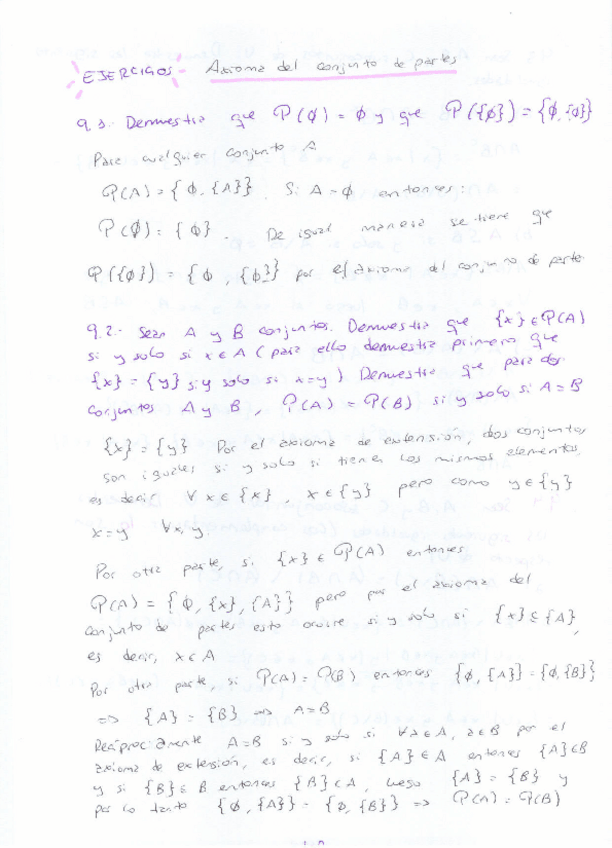 EJERCICIOS Axioma del conjunto de partes
9.1.- Demuestra que P(φ) = φ y que P({φ}) = {φ,{φ}}
Para cualquier conjunto A
P(A) = {φ, {A}}. Si A = φ entonces:
P(φ) = {φ}. De igual manera se tiene que
P({φ}) = {φ, {φ}} por el axioma del conjunto de partes
9.2.- Sean A y B conjuntos. Demuestra que {x} ∈ P(A)
si y solo si x ∈ A (para ello demuestra primero que
{x} = {y} si y solo si x=y) Demuestra que para dos
conjuntos A y B, P(A) = P(B) si y solo si A = B
{x} = {y} Por el axioma de extensión, dos conjuntos
son iguales si y solo si tienen los mismos elementos,
es decir, ∀ x ∈ {x}, x ∈ {y} pero como y ∈ {y}
x = y ∀x,y.
Por otra parte, si {x} ∈ P(A) entonces
P(A) = {φ, {x}, {A}} pero por el axioma del
conjunto de partes esto ocurre si y solo si {x} ⊆ {A},
es decir, x ∈ A
Por otra parte, si P(A) = P(B) entonces {φ, {A}} = {φ, {B}}
⇒ {A} = {B} ⇒ A = B
Recíprocamente A = B si y solo si ∀a ∈ A, a ∈ B por el
axioma de extensión, es decir, si {A} ∈ A entonces {A} ∈ B
y si {B} ∈ B entonces {B} ∈ A, luego {A} = {B} y
por lo tanto {φ, {A}} = {φ, {B}} ⇒ P(A) = P(B)